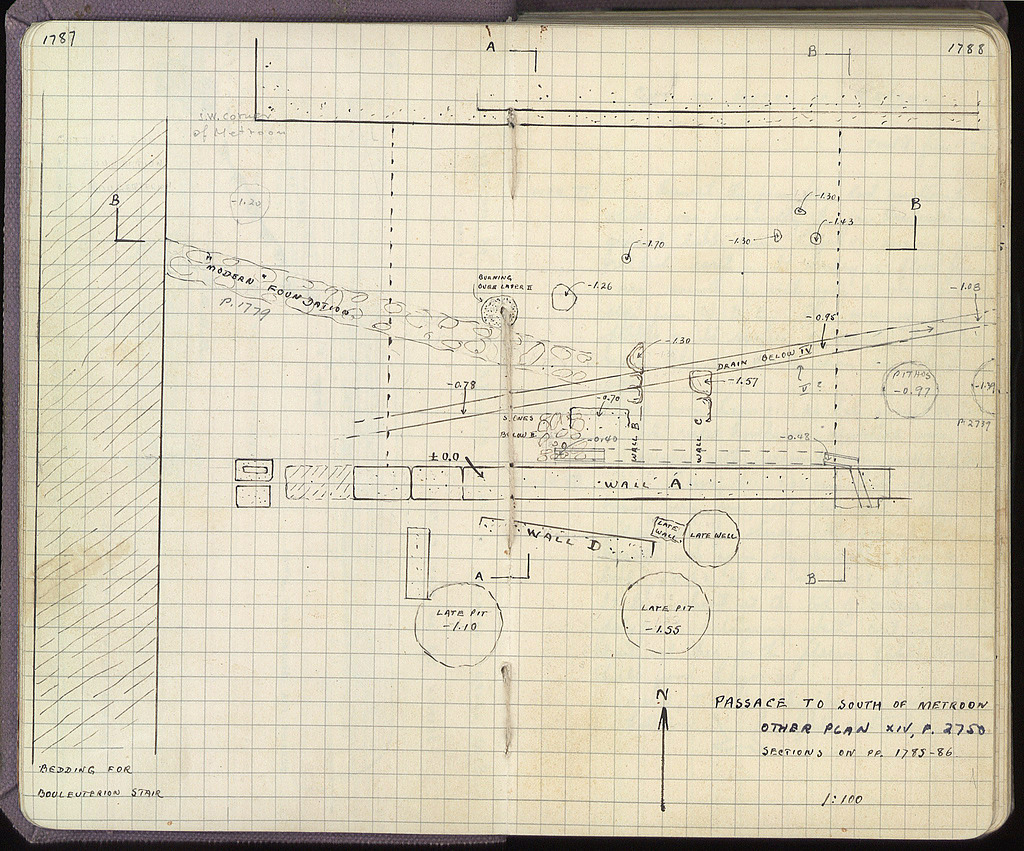 1787
A
B
1788
S.W. corner
of Metroon
-1.20
B
B
-1.30
-1.43
-1.30
-1.70
"MODERN" FOUNDATION
P. 1779
BURNING
OVER LAYER II
-1.26
-1.03
-0.95
-1.30
DRAIN BELOW IV
V ?
-1.57
-0.78
-0.70
PITHOS
-0.97
-1.39
P. 2737
STONES
BELOW II
-0.40
WALL B
WALL C
-0.48
±0.0
WALL A
WALL D
LATE
WALL
LATE WELL
A
B
LATE PIT
-1.10
LATE PIT
-1.55
N
PASSAGE TO SOUTH OF METROON
OTHER PLAN XIV, P. 2750
SECTIONS ON PP. 1785-86
1:100
BEDDING FOR
BOULEUTERION STAIR